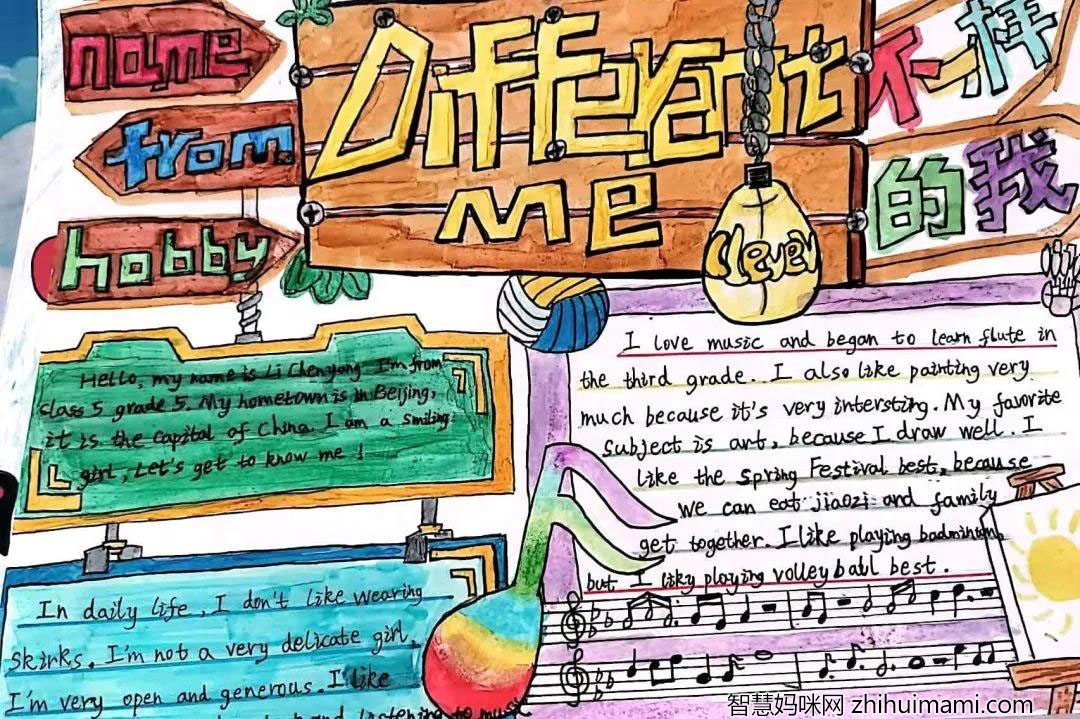 name
from.
hobby
Different
me
不一样
的我
Hello, my name is Li Chenyang I'm from
class 5 grade 5. My hometown is in Beijing,
it is the capital of China. I am a smiling
girl, Let's get to know me !
In daily life, I don't like wearing
skirks. I'm not a very delicate girl.
I'm very open and generous. I like
and listening to music
I love music and began to learn flute in
the third grade. I also like painting very
much because it's very intersting. My favorite
subject is art, because I draw well. I
like the Spring Festival best, because
we can eat jiaozi and family
get together. I like playing badminton,
but I liky playing volley ball best.
智慧妈咪网 zhihuimami.com